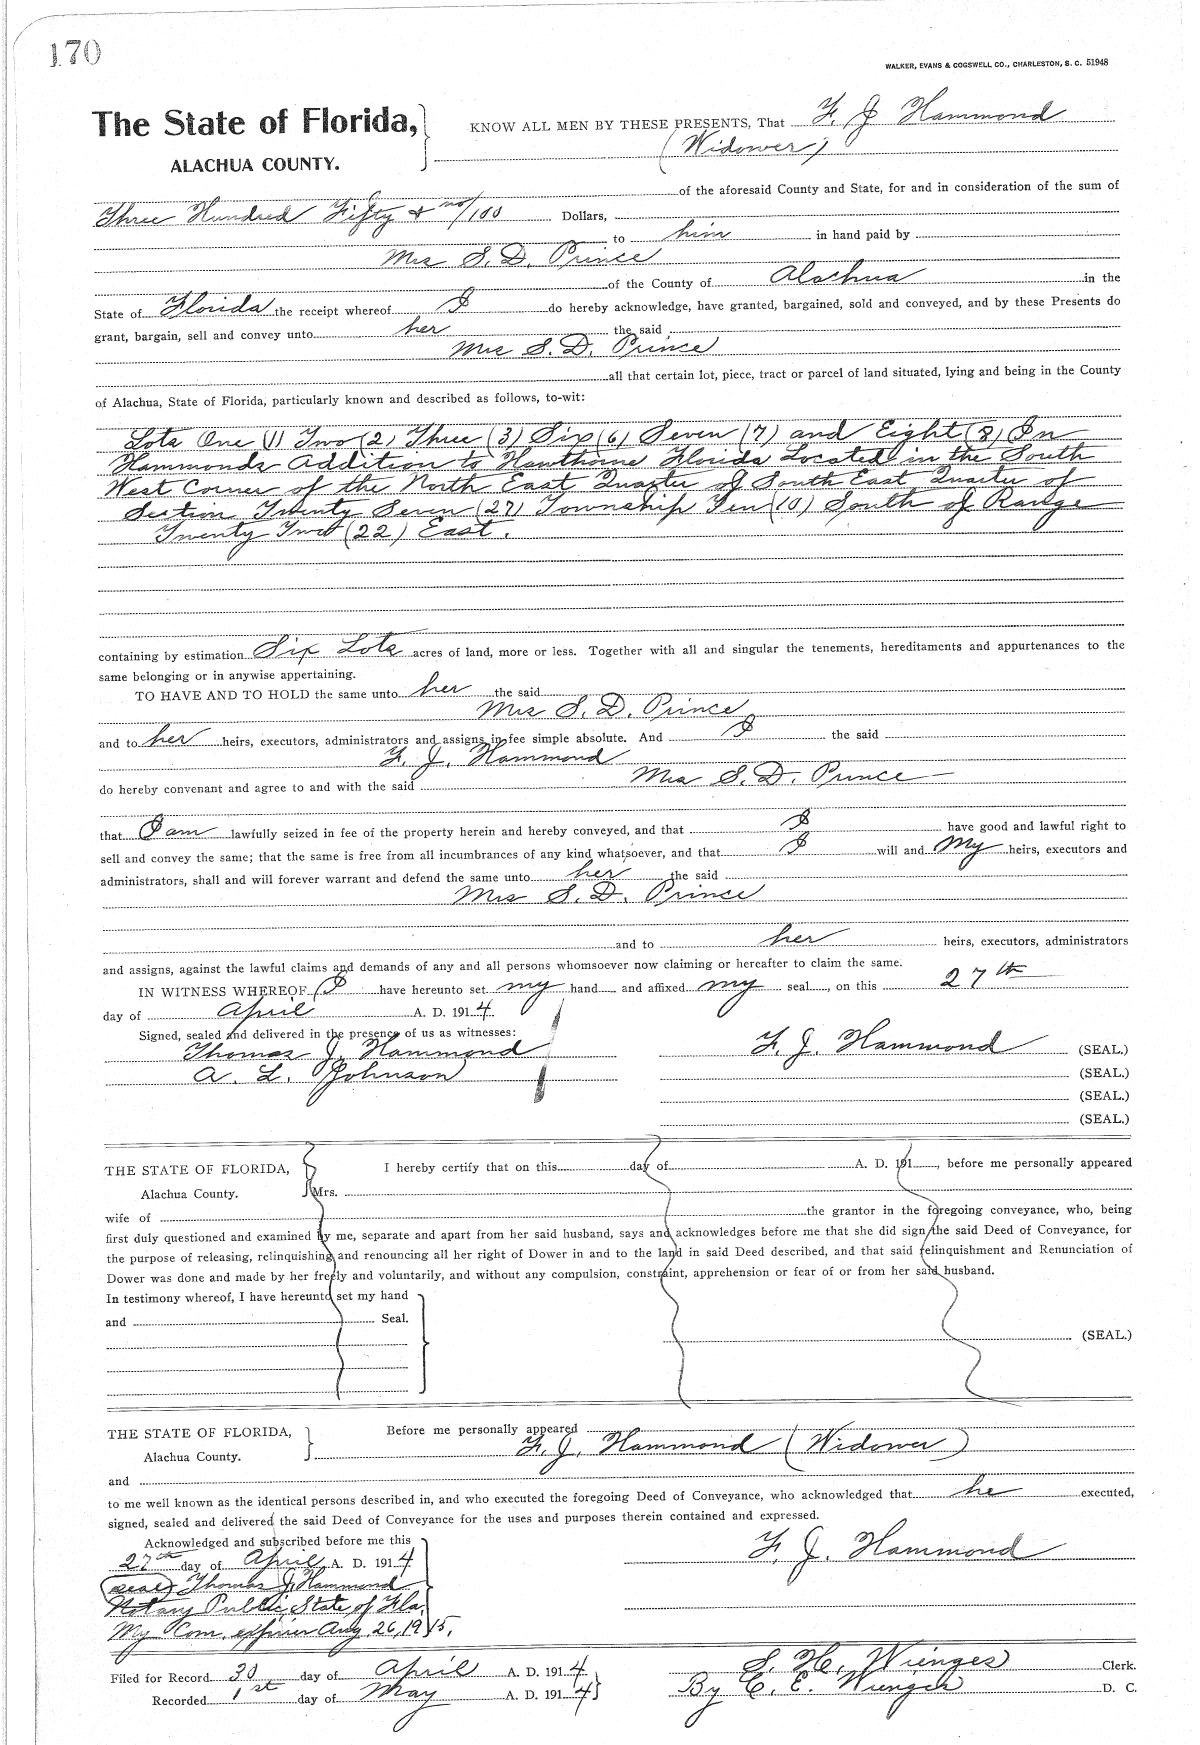 170
WALKER, EVANS & COGSWELL CO., CHARLESTON, S. C. 51948
The State of Florida,
ALACHUA COUNTY.
KNOW ALL MEN BY THESE PRESENTS, That F. J. Hammond
(Widower)
of the aforesaid County and State, for and in consideration of the sum of
Three Hundred Fifty & no/100 Dollars,
to him in hand paid by
Mrs S. D. Prince
of the County of Alachua in the
State of Florida the receipt whereof I do hereby acknowledge, have granted, bargained, sold and conveyed, and by these Presents do
grant, bargain, sell and convey unto her the said
Mrs S. D. Prince
all that certain lot, piece, tract or parcel of land situated, lying and being in the County
of Alachua, State of Florida, particularly known and described as follows, to-wit:
Lots One (1) Two (2) Three (3) Six (6) Seven (7) and Eight (8) In
Hammonds Addition to Hawthorne Florida Located in the South
West Corner of the North East Quarter of South East Quarter of
Section Twenty Seven (27) Township Ten (10) South of Range
Twenty Two (22) East.
containing by estimation Six Lots acres of land, more or less. Together with all and singular the tenements, hereditaments and appurtenances to the
same belonging or in anywise appertaining.
TO HAVE AND TO HOLD the same unto her the said
Mrs S. D. Prince
and to her heirs, executors, administrators and assigns in fee simple absolute. And I the said
F. J. Hammond
do hereby convenant and agree to and with the said Mrs S. D. Prince
that I am lawfully seized in fee of the property herein and hereby conveyed, and that I have good and lawful right to
sell and convey the same; that the same is free from all incumbrances of any kind whatsoever, and that I will and My heirs, executors and
administrators, shall and will forever warrant and defend the same unto her the said
Mrs S. D. Prince
and to her heirs, executors, administrators
and assigns, against the lawful claims and demands of any and all persons whomsoever now claiming or hereafter to claim the same.
IN WITNESS WHEREOF, I have hereunto set my hand and affixed my seal, on this 27th
day of April A. D. 1914.
Signed, sealed and delivered in the presence of us as witnesses:
Thomas J. Hammond
A. L. Johnson
F. J. Hammond (SEAL.)
(SEAL.)
(SEAL.)
(SEAL.)
THE STATE OF FLORIDA,
Alachua County.
I hereby certify that on this day of A. D. 191 , before me personally appeared
Mrs.
wife of the grantor in the foregoing conveyance, who, being
first duly questioned and examined by me, separate and apart from her said husband, says and acknowledges before me that she did sign the said Deed of Conveyance, for
the purpose of releasing, relinquishing and renouncing all her right of Dower in and to the land in said Deed described, and that said relinquishment and Renunciation of
Dower was done and made by her freely and voluntarily, and without any compulsion, constraint, apprehension or fear of or from her said husband.
In testimony whereof, I have hereunto set my hand
and Seal.
(SEAL.)
THE STATE OF FLORIDA,
Alachua County.
Before me personally appeared
F. J. Hammond (Widower)
and
to me well known as the identical persons described in, and who executed the foregoing Deed of Conveyance, who acknowledged that he executed,
signed, sealed and delivered the said Deed of Conveyance for the uses and purposes therein contained and expressed.
Acknowledged and subscribed before me this
27th day of April A. D. 1914
(seal) Thomas J. Hammond
Notary Public, State of Fla.
My Com. expires Aug 26, 1915.
F. J. Hammond
Filed for Record 30 day of April A. D. 1914
Recorded 1st day of May A. D. 1914
S. H. Wienges Clerk.
By C. E. Wienges D. C.